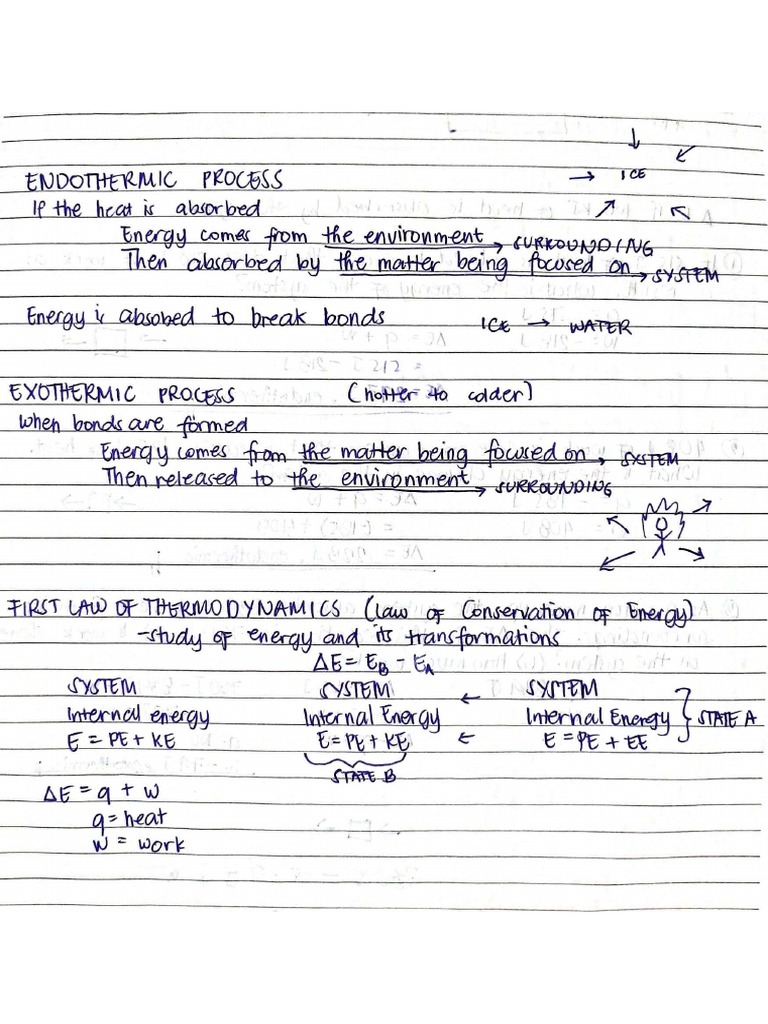 ENDOTHERMIC PROCESS → ICE
If the heat is absorbed
Energy comes from the environment → SURROUNDING
Then absorbed by the matter being focused on → SYSTEM
Energy is absobed to break bonds ICE → WATER
EXOTHERMIC PROCESS (hotter to colder)
When bonds are formed
Energy comes from the matter being focused on → SYSTEM
Then released to the environment → SURROUNDING
FIRST LAW OF THERMODYNAMICS (Law of Conservation of Energy)
-study of energy and its transformations
ΔE = E_B - E_A
SYSTEM SYSTEM ← SYSTEM
Internal energy Internal Energy Internal Energy } STATE A
E = PE + KE E = PE + KE ← E = PE + EE
STATE B
ΔE = q + w
q = heat
w = work